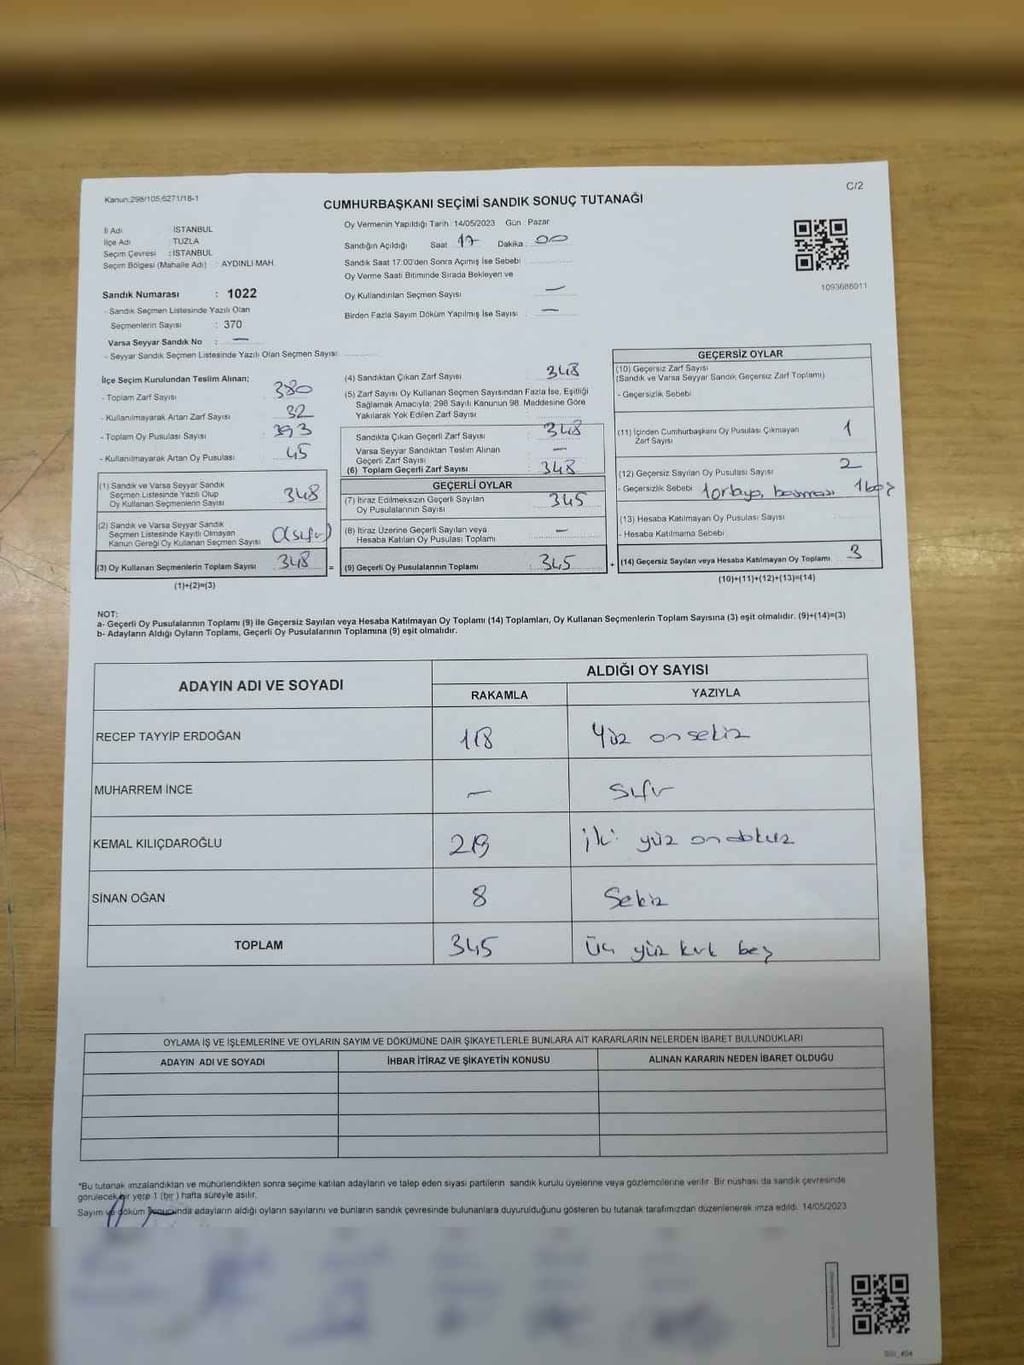 Kanun:298/105,6271/18-1
C/2
CUMHURBAŞKANI SEÇİMİ SANDIK SONUÇ TUTANAĞI
İl Adı : İSTANBUL
İlçe Adı : TUZLA
Seçim Çevresi : İSTANBUL
Seçim Bölgesi (Mahalle Adı) : AYDINLI MAH.
Sandık Numarası : 1022
- Sandık Seçmen Listesinde Yazılı Olan
Seçmenlerin Sayısı : 370
Varsa Seyyar Sandık No : —
- Seyyar Sandık Seçmen Listesinde Yazılı Olan Seçmen Sayısı
Oy Vermenin Yapıldığı Tarih : 14/05/2023 Gün : Pazar
Sandığın Açıldığı Saat 17 Dakika 00
Sandık Saat 17:00'den Sonra Açılmış İse Sebebi
Oy Verme Saati Bitiminde Sırada Bekleyen ve
Oy Kullandırılan Seçmen Sayısı —
Birden Fazla Sayım Döküm Yapılmış İse Sayısı —
1093686011
İlçe Seçim Kurulundan Teslim Alınan;
- Toplam Zarf Sayısı 380
- Kullanılmayarak Artan Zarf Sayısı 32
- Toplam Oy Pusulası Sayısı 393
- Kullanılmayarak Artan Oy Pusulası 45
(1) Sandık ve Varsa Seyyar Sandık
Seçmen Listesinde Yazılı Olup
Oy Kullanan Seçmenlerin Sayısı 348
(2) Sandık ve Varsa Seyyar Sandık
Seçmen Listesinde Kayıtlı Olmayan
Kanun Gereği Oy Kullanan Seçmen Sayısı 0(sıfır)
(3) Oy Kullanan Seçmenlerin Toplam Sayısı 348 =
(1)+(2)=(3)
(4) Sandıktan Çıkan Zarf Sayısı 348
(5) Zarf Sayısı Oy Kullanan Seçmen Sayısından Fazla İse, Eşitliği
Sağlamak Amacıyla; 298 Sayılı Kanunun 98. Maddesine Göre
Yakılarak Yok Edilen Zarf Sayısı
Sandıkta Çıkan Geçerli Zarf Sayısı 348
Varsa Seyyar Sandıktan Teslim Alınan
Geçerli Zarf Sayısı —
(6) Toplam Geçerli Zarf Sayısı 348
GEÇERLİ OYLAR
(7) İtiraz Edilmeksizin Geçerli Sayılan
Oy Pusulalarının Sayısı 345
(8) İtiraz Üzerine Geçerli Sayılan veya
Hesaba Katılan Oy Pusulası Toplamı —
(9) Geçerli Oy Pusulalarının Toplamı 345 +
GEÇERSİZ OYLAR
(10) Geçersiz Zarf Sayısı
(Sandık ve Varsa Seyyar Sandık Geçersiz Zarf Toplamı)
- Geçersizlik Sebebi
(11) İçinden Cumhurbaşkanı Oy Pusulası Çıkmayan
Zarf Sayısı 1
(12) Geçersiz Sayılan Oy Pusulası Sayısı 2
- Geçersizlik Sebebi 1 ortaya basması 1 boş
(13) Hesaba Katılmayan Oy Pusulası Sayısı
- Hesaba Katılmama Sebebi
(14) Geçersiz Sayılan veya Hesaba Katılmayan Oy Toplamı 3
(10)+(11)+(12)+(13)=(14)
NOT:
a- Geçerli Oy Pusulalarının Toplamı (9) ile Geçersiz Sayılan veya Hesaba Katılmayan Oy Toplamı (14) Toplamları, Oy Kullanan Seçmenlerin Toplam Sayısına (3) eşit olmalıdır. (9)+(14)=(3)
b- Adayların Aldığı Oyların Toplamı, Geçerli Oy Pusulalarının Toplamına (9) eşit olmalıdır.
ADAYIN ADI VE SOYADI
ALDIĞI OY SAYISI
RAKAMLA YAZIYLA
RECEP TAYYİP ERDOĞAN 118 Yüz on sekiz
MUHARREM İNCE — Sıfır
KEMAL KILIÇDAROĞLU 219 iki yüz on dokuz
SİNAN OĞAN 8 Sekiz
TOPLAM 345 Üç yüz kırk beş
OYLAMA İŞ VE İŞLEMLERİNE VE OYLARIN SAYIM VE DÖKÜMÜNE DAİR ŞİKAYETLERLE BUNLARA AİT KARARLARIN NELERDEN İBARET BULUNDUKLARI
ADAYIN ADI VE SOYADI İHBAR İTİRAZ VE ŞİKAYETİN KONUSU ALINAN KARARIN NEDEN İBARET OLDUĞU
*Bu tutanak imzalandıktan ve mühürlendikten sonra seçime katılan adayların ve talep eden siyasi partilerin sandık kurulu üyelerine veya gözlemcilerine verilir. Bir nüshası da sandık çevresinde
görülecek bir yere 1 (bir ) hafta süreyle asılır.
Sayım ve döküm sonucunda adayların aldığı oyların sayılarını ve bunların sandık çevresinde bulunanlara duyurulduğunu gösteren bu tutanak tarafımızdan düzenlenerek imza edildi. 14/05/2023